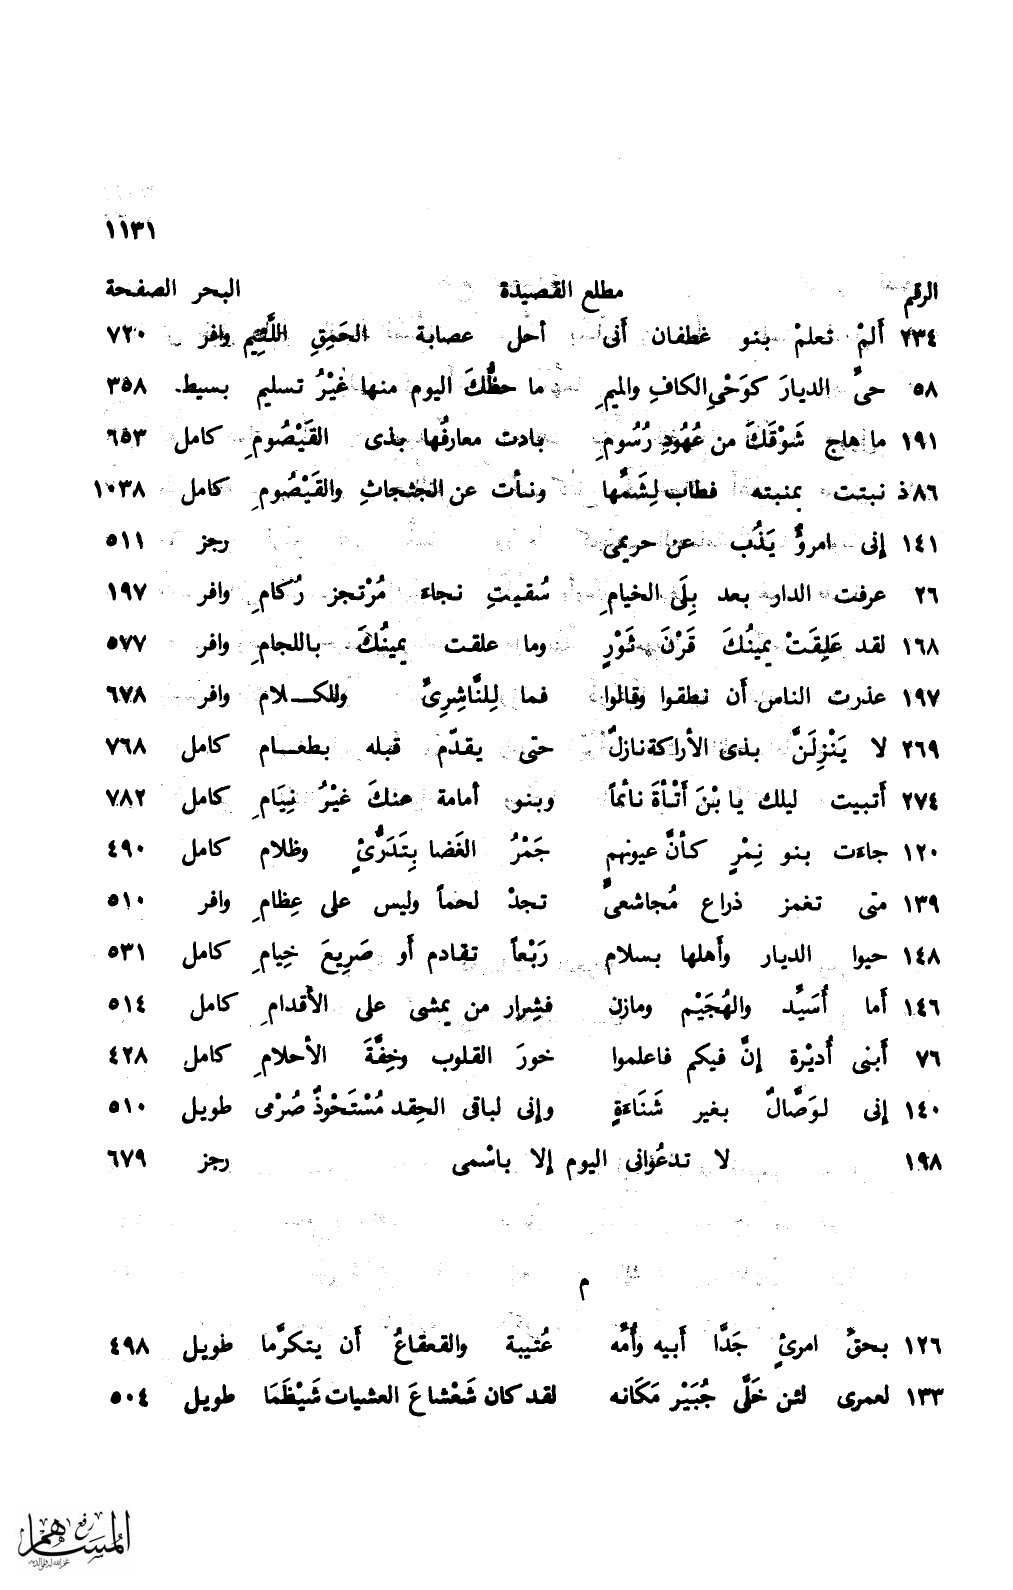 ١١٣١
الرقم مطلع القصيدة البحر الصفحة
٢٣٤ أَلمْ تعلمْ بنو غطفان أَنى أحل عصابة الحَمِقِ اللَّئيم وافر ٧٢٠
٥٨ حىِّ الديارَ كوَحْىِ الكافِ والميمِ ما حظُّكَ اليوم منها غيْرُ تسليم بسيط ٣٥٨
١٩١ ما هاج شَوْقَكَ من عُهُودِ رُسُومِ بادت معارفُها بذى القَيْصُومِ كامل ٦٥٣
٨٦ذ نبتت بمنبته فطاب لِشَمِّها ونأت عن الجثجاثِ والقَيْصُومِ كامل ١٠٣٨
١٤١ إنى امرؤٌ يَذُب عن حريمى رجز ٥١١
٢٦ عرفت الدار بعد بِلَى الخيامِ سُقيتِ نجاء مُرْتجز رُكامِ وافر ١٩٧
١٦٨ لقد عَلِقَتْ يمينُكَ قَرْنَ ثَوْرٍ وما علقت يمينُكَ باللجامِ وافر ٥٧٧
١٩٧ عذرت الناس أَن نطقوا وقالوا فما لِلنَّاشِرِىِّ وللكلام وافر ٦٧٨
٢٦٩ لا يَنْزِلَنَّ بذى الأراكة نازلٌ حتى يقدّم قبله بطعام كامل ٧٦٨
٢٧٤ أَتبيت ليلك يا بْنَ أَتْأَةَ نائماً وبنو أمامة عنكَ غيْرُ نِيَامِ كامل ٧٨٢
١٢٠ جاءت بنو نِمْرٍ كأنَّ عيونهم جَمْرُ الغَضا بِتَدَرُّئٍ وظلام كامل ٤٩٠
١٣٩ متى تغمز ذراع مُجاشعىٍّ تجدْ لحماً وليس على عِظامِ وافر ٥١٠
١٤٨ حيوا الديار وأَهلها بسلام رَبْعاً تقادم أَو صَرِيعَ خِيامِ كامل ٥٣١
١٤٦ أَما أُسَيِّد والهُجَيْم ومازن فشِرار من يمشى على الأقدامِ كامل ٥١٤
٧٦ أَبنى أُديْرة إنَّ فيكم فاعلموا خورَ القلوب وخِفَّةَ الأحلامِ كامل ٤٢٨
١٤٠ إنى لوَصَّالٌ بغير شَنَاءَةٍ وإنى لباقى الحِقد مُسْتَحْوذٌ صُرْمى طويل ٥١٠
١٩٨ لا تدعُوانى اليوم إلا باسْمى رجز ٦٧٩
م
١٢٦ بحقِّ امرئٍ جَدَّا أَبيه وأُمِّه عُتيبة والقعقاعُ أَن يتكرَّما طويل ٤٩٨
١٣٣ لعمرى لئن خَلَّى جُبَيْر مَكَانه لقد كان شَعْشاعَ العشيات شَيْظَمَا طويل ٥٠٤